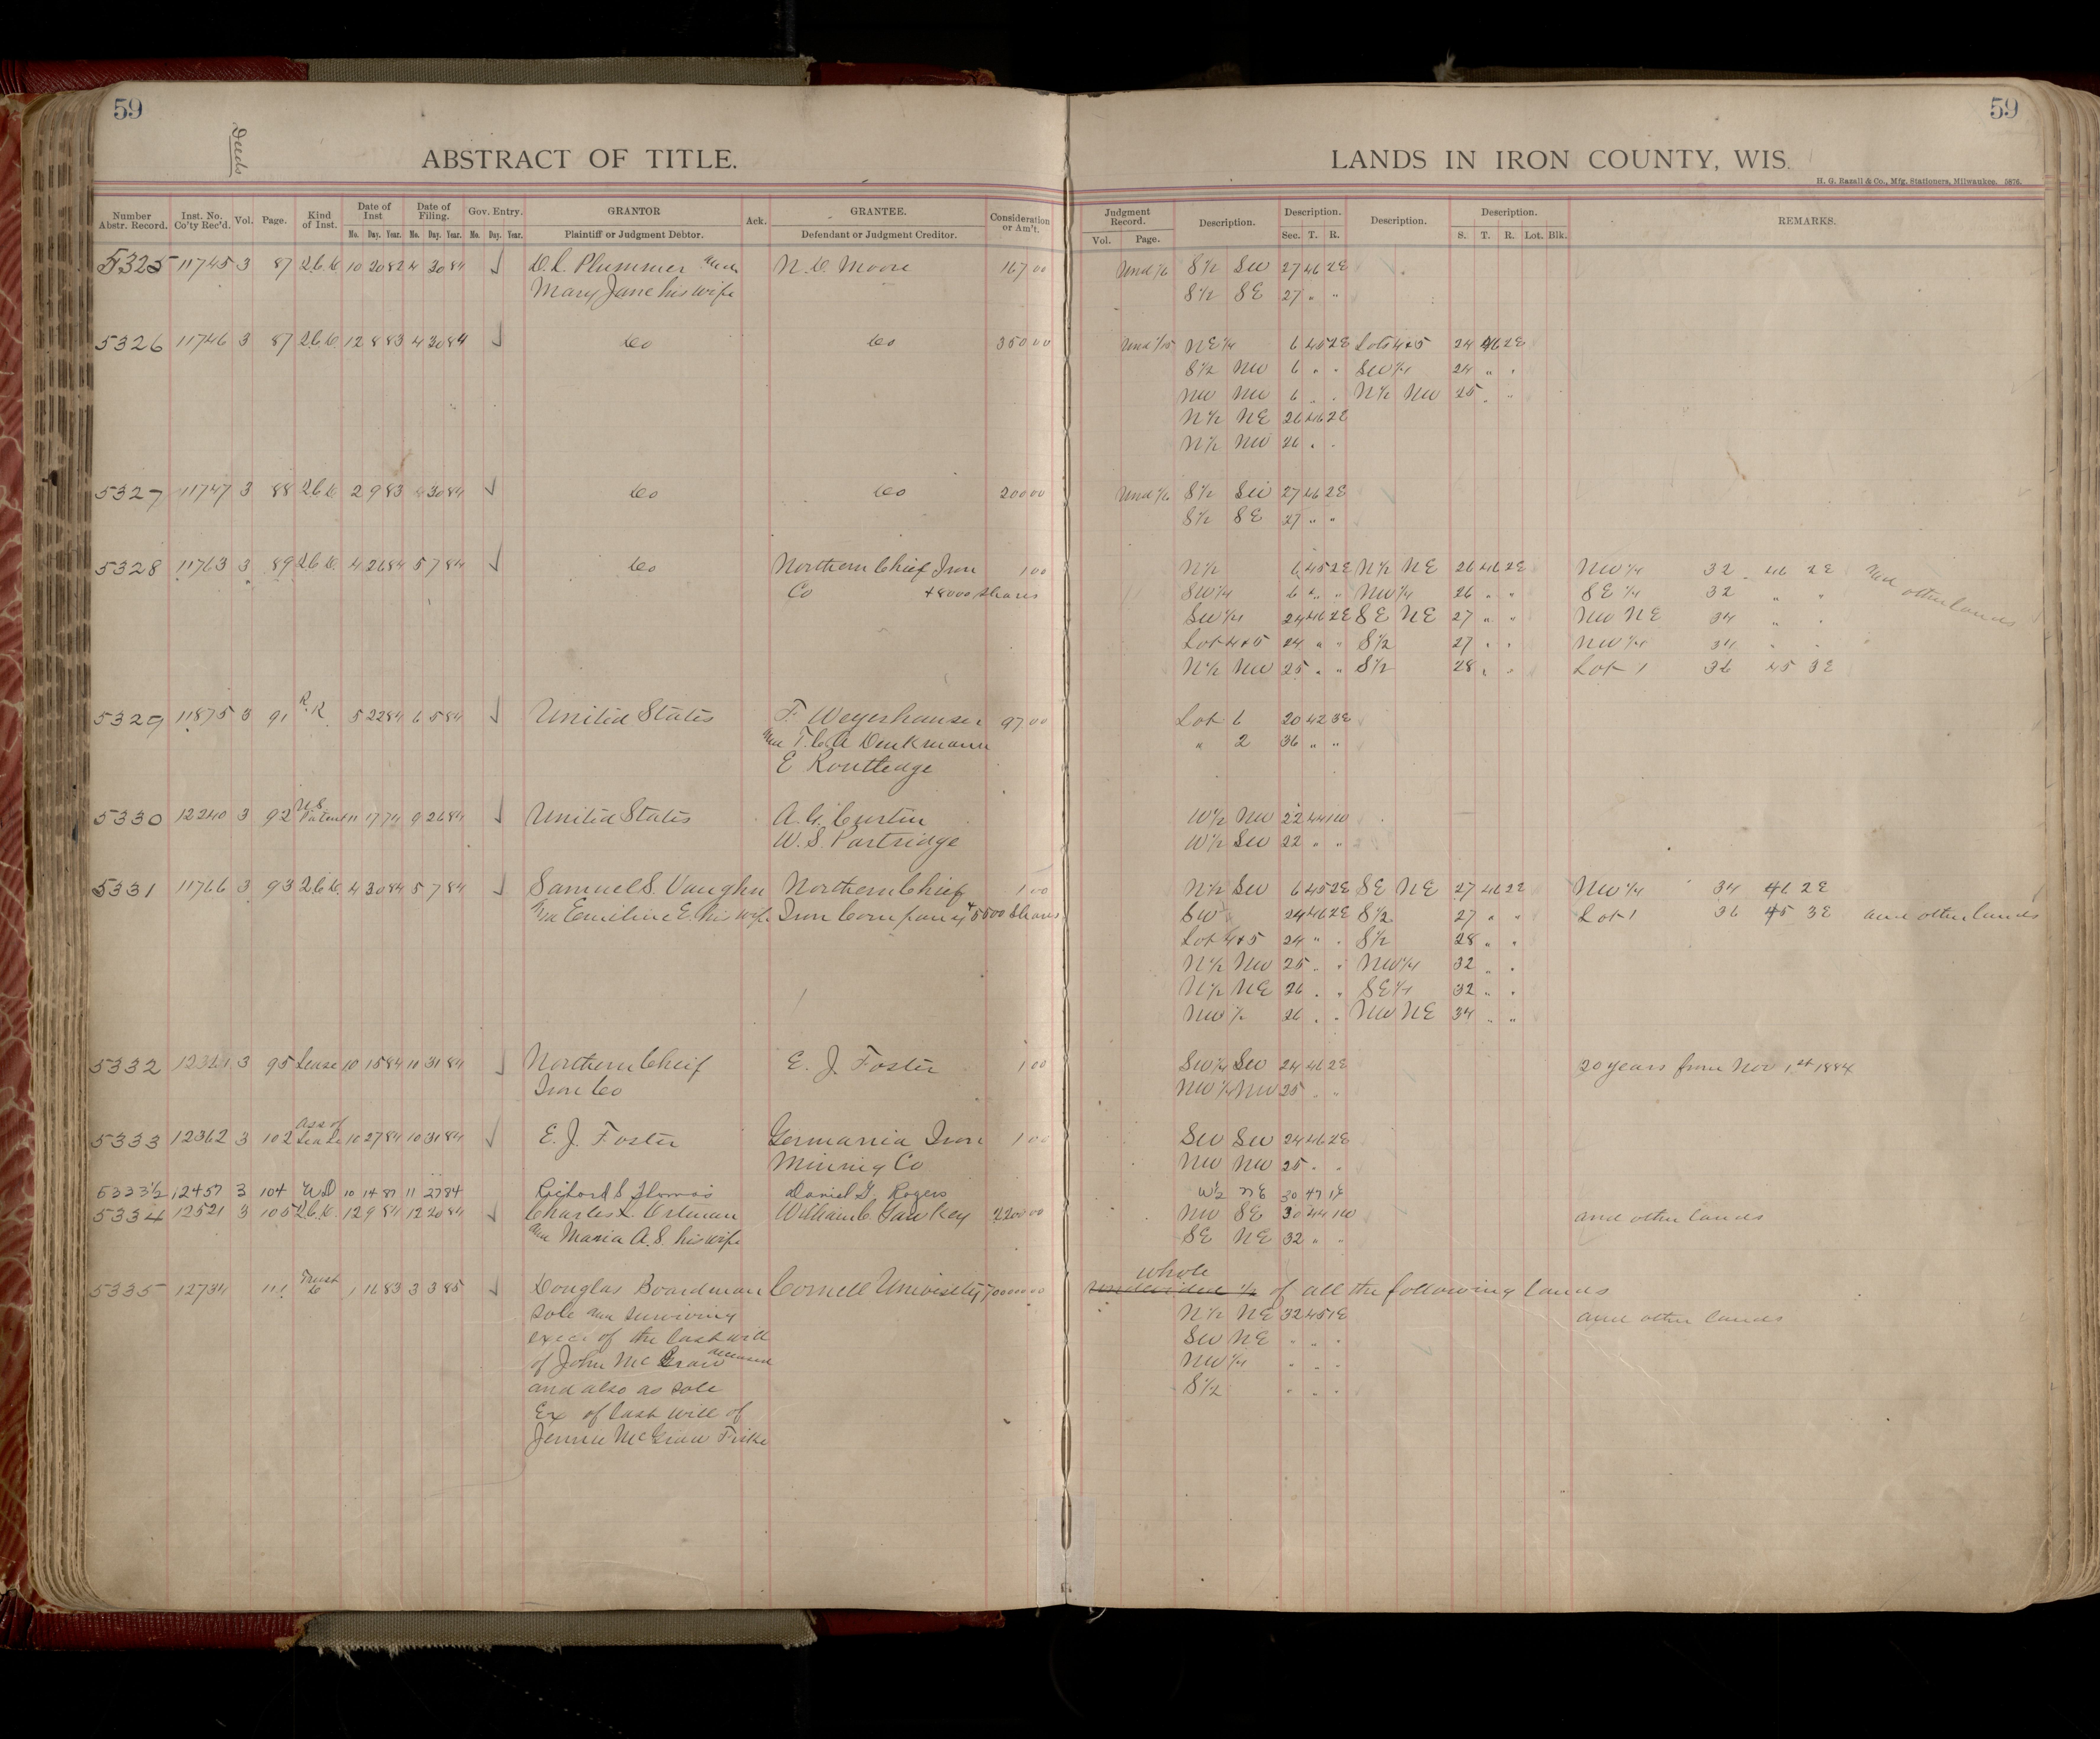 59
59
Deeds
ABSTRACT OF TITLE.
LANDS IN IRON COUNTY, WIS.
H. G. Razall & Co., Mfg. Stationers, Milwaukee. 5876.
Number Abstr. Record. Inst. No. Co'ty Rec'd. Vol. Page. Kind of Inst. Date of Inst Date of Filing. Gov. Entry. GRANTOR Ack. GRANTEE. Consideration or Am't. Judgment Record. Description. Description. Description. Description. REMARKS.
Mo. Day. Year. Mo. Day. Year. Mo. Day. Year. Plaintiff or Judgment Debtor. Defendant or Judgment Creditor. Vol. Page. Sec. T. R. S. T. R. Lot. Blk.
5325 11745 3 87 2.C.C. 10 20 82 4 30 84 ✓ D.L. Plummer and N. C. Moore 167 00 Und 1/6 S 1/2 SW 27 46 2E
Mary Jane his wife S 1/2 SE 27 " "
5326 11746 3 87 2.C.C. 12 8 83 4 30 84 ✓ Do Do 350 00 Und 1/15 NE 1/4 6 45 2E Lots 4+5 24 46 2E
S 1/2 NW 6 " " SW 1/4 24 " "
NW NW 6 " " N 1/2 NW 25 " "
N 1/2 NE 26 46 2E
N 1/2 NW 26 " "
5327 11747 3 88 2.C.C. 2 9 83 4 30 84 ✓ Do Do 200 00 Und 1/6 S 1/2 SW 27 46 2E
S 1/2 SE 27 " "
5328 11763 3 89 2.C.C. 4 26 84 5 7 84 ✓ Do Northern Chief Iron 1 00 N 1/2 6 45 2E N 1/2 NE 26 46 2E NW 1/4 32 46 2E and other lands
Co + 8000 shares SW 1/4 6 " " NW 1/4 26 " " SE 1/4 32 " "
SW 1/4 24 46 2E SE NE 27 " " NW NE 34 " "
Lot 4+5 24 " " S 1/2 27 " " NW 1/4 34 " "
N 1/2 NW 25 " " S 1/2 28 " " Lot 1 36 45 3E
5329 11875 3 91 R.R. 5 22 84 6 5 84 ✓ United States F. Weyerhauser 97 00 Lot 6 20 42 3E
and F.C.A Denkmann " 2 36 " "
E Routledge
5330 12240 3 92 U.S. Patent 11 17 74 9 26 84 ✓ United States A. G. Curtin W 1/2 NW 22 44 1W
W. S. Partridge W 1/2 SW 22 " "
5331 11766 3 93 2.C.C. 4 30 84 5 7 84 ✓ Samuel S. Vaughn Northern Chief 1 00 N 1/2 SW 6 45 2E SE NE 27 46 2E NW 1/4 34 46 2E
and Emeline E. his wife Iron Company + 5500 Shares SW 24 46 2E S 1/2 27 " " Lot 1 36 45 3E and other lands
Lot 4+5 24 " " S 1/2 28 " "
N 1/2 NW 25 " " NW 1/4 32 " "
N 1/2 NE 26 " " SE 1/4 32 " "
NW 1/4 26 " " NW NE 34 " "
5332 3 95 Lease 10 15 84 10 31 84 ✓ Northern Chief E. J. Foster 1 00 SW 1/4 SW 24 46 2E 20 years from Nov 1st 1884
Iron Co NW 1/4 NW 25 " "
5333 12362 3 102 Ass of Lease 10 27 84 10 31 84 ✓ E. J. Foster Germania Iron 1 00 SW SW 24 46 2E
Mining Co NW NW 25 " "
5333 1/2 12457 3 104 WD 10 14 84 11 27 84 Richard S Thomas Daniel G. Rogers W 1/2 NE 30 47 1E
5334 12521 3 105 2.C.C. 12 9 84 12 20 84 ✓ Charles L. Ortman William C. Yawkey 2200 00 NW SE 30 44 1W and other lands
and Maria A.S. his wife SE NE 32 " "
5335 12734 3 111 Trust D 1 11 83 3 3 85 ✓ Douglas Boardman Cornell University 70000 00 whole Undivided 1/2 of all the following lands
sole and surviving N 1/2 NE 32 45 1E and other lands
exec of the last will SW NE " " "
of John McGraw deceased NW 1/4 " " "
and also as sole S 1/2 " " "
Ex of last will of
Jennie McGraw Fiske